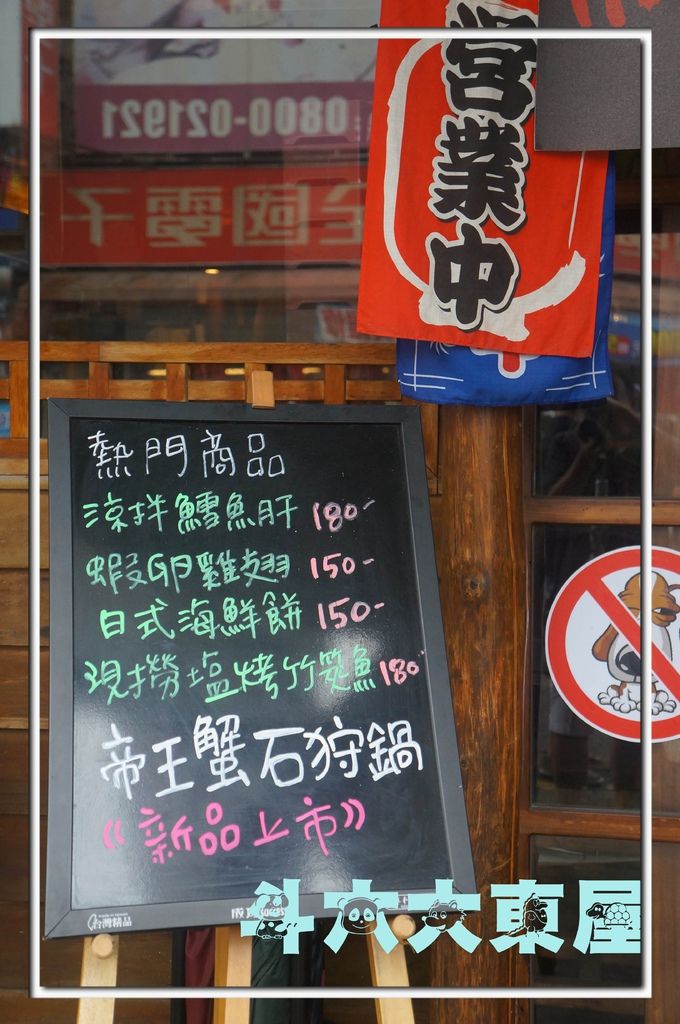 0800-021921
全國電子
營業中
熱門商品
涼拌鱈魚肝 180-
蝦卵雞翅 150-
日式海鮮餅 150-
現撈塩烤竹筴魚 180-
帝王蟹石狩鍋
《新品上市》
台灣精品
斗六大東屋